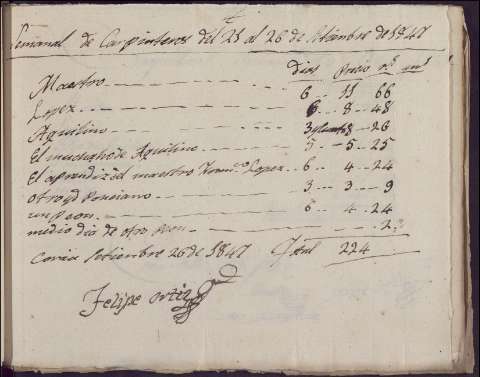 Semanal de Carpinteros del 21 al 26 de Setiembre de 1847
dias Precio rs ms
Maestro 6 .. 11 66
Lopez 6 .. 8 .. 48
Aquilino 3 8 .. 26
El muchacho de Aquilino 5 .. 5 .. 25
El aprendiz del maestro Lopez 6 .. 4 .. 24
otro de Ponciano 3 ... 3 ... 9
un peon 6 .. 4 .. 24
medio dia de otro peon 2
Coria Setiembre 26 de 1847 Total 224
Felipe Ortiz